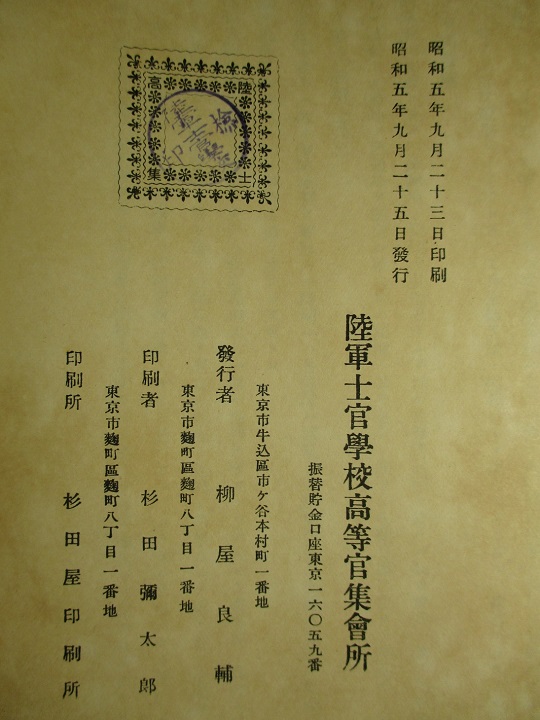 昭和五年九月二十三日印刷
昭和五年九月二十五日發行
陸軍士官學校高等官集會所
振替貯金口座東京一六〇五九番
東京市牛込區市ヶ谷本村町一番地
發行者 柳屋良輔
東京市麴町區麴町八丁目一番地
印刷者 杉田彌太郎
東京市麴町區麴町八丁目一番地
印刷所 杉田屋印刷所
陸士高集